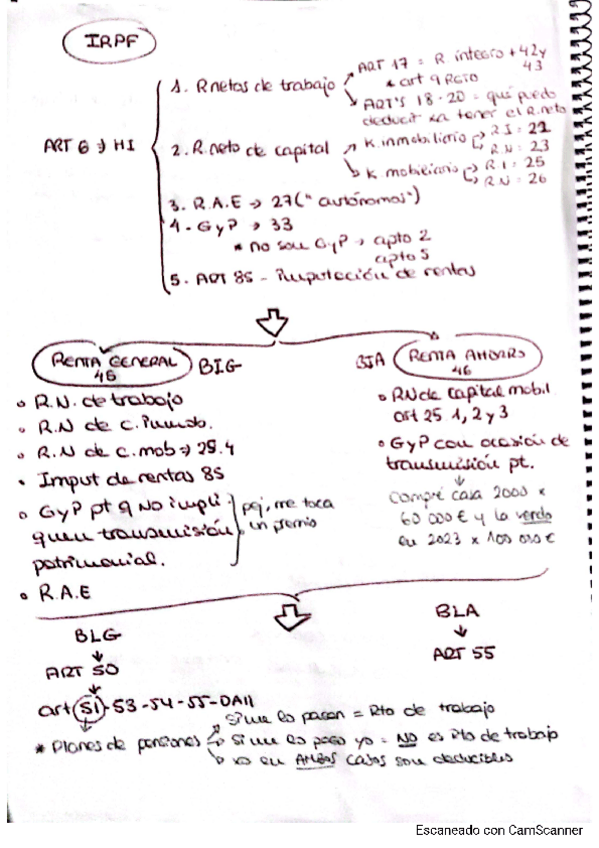 IRPF
ART 6 => HI
1. R netas de trabajo
ART 17 = R íntegro + 42 y 43
* art 9 RGTO
ART'S 18-20 = qué puedo
deducir xa tener el R.neto
2. R. neto de capital
K. inmobiliario
R I : 22
R N : 23
K. mobiliario
R I : 25
R N : 26
3. R.A.E -> 27 ("autónomos")
4. GyP -> 33
* no son GyP -> apto 2
apto 5
5. ART 85 - imputación de rentas
RENTA GENERAL BIG
45
• R.N. de trabajo
• R.N de c. inmob.
• R.N de c. mob => 25.4
• Imput de rentas 85
• GyP pt q no impli
quen transmisión
patrimonial.
pej, me toca
un premio
• R.A.E
BIA RENTA AHORRO
46
• RN de capital mobil.
art 25 1, 2 y 3
• GyP con ocasión de
transmisión pt.
Compré casa 2000 x
60 000 € y la vendo
en 2023 x 100 000 €
BLG
ART 50
art 51-53-54-55-DA11
* Planes de pensiones
Si me los pagan = Rto de trabajo
Si me lo pago yo = NO es Rto de trabajo
en AMBOS casos son deducibles
BLA
ART 55
Escaneado con CamScanner